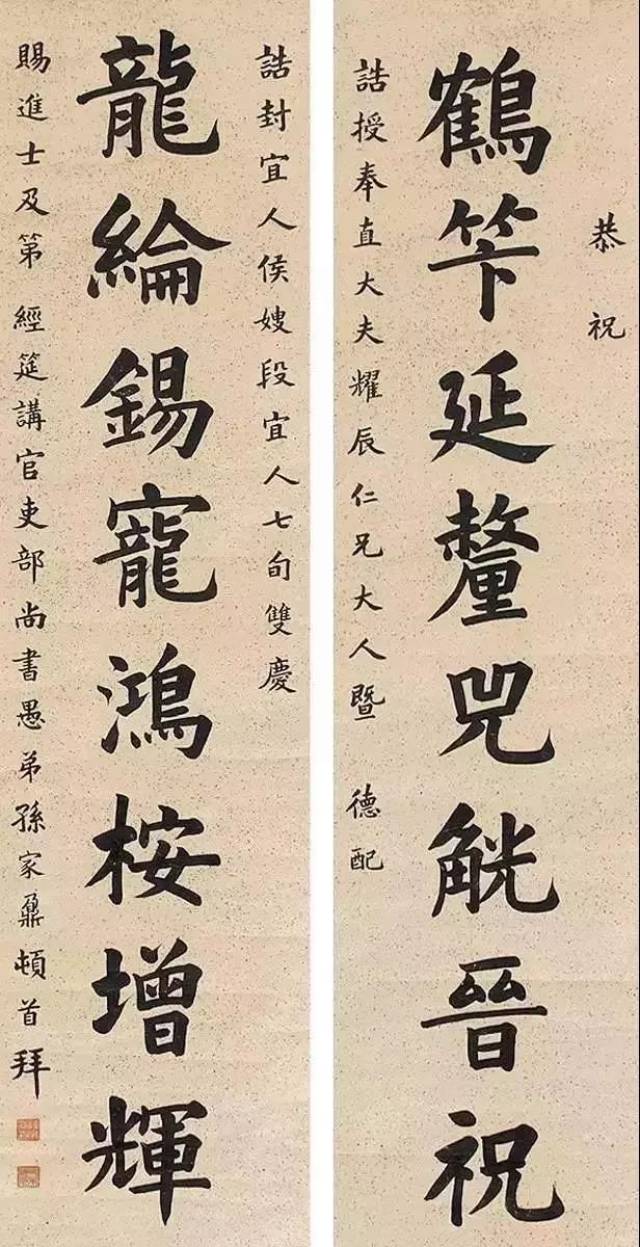 恭祝
鶴笇延釐兕觥晉祝
誥授奉直大夫耀辰仁兄大人暨 德配
誥封宜人侯嫂段宜人七旬雙慶
龍綸錫寵鴻桉增輝
賜進士及第經筵講官吏部尚書愚弟孫家鼐頓首拜